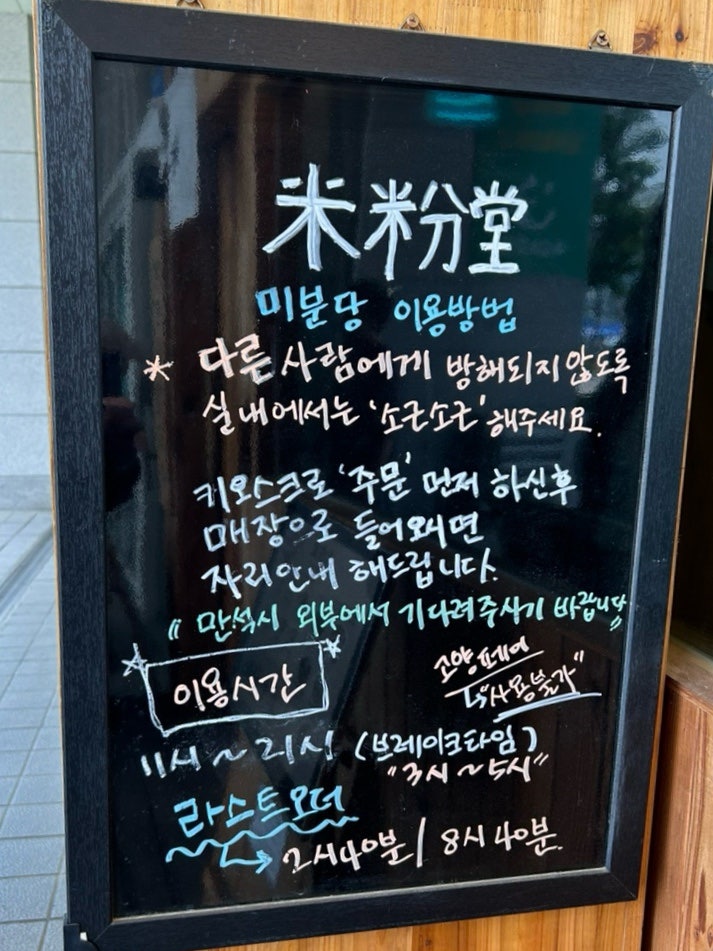 米粉堂
미분당 이용방법
* 다른 사람에게 방해되지 않도록
실내에서는 '소근소근' 해주세요.
키오스크로 '주문' 먼저 하신후
매장으로 들어오시면
자리안내 해드립니다.
"만석시 외부에서 기다려주시기 바랍니다"
이용시간
고양페이
↳"사용불가"
11시 ~ 21시 (브레이크타임)
"3시 ~ 5시"
라스트오더
→ 2시40분 / 8시 40분.